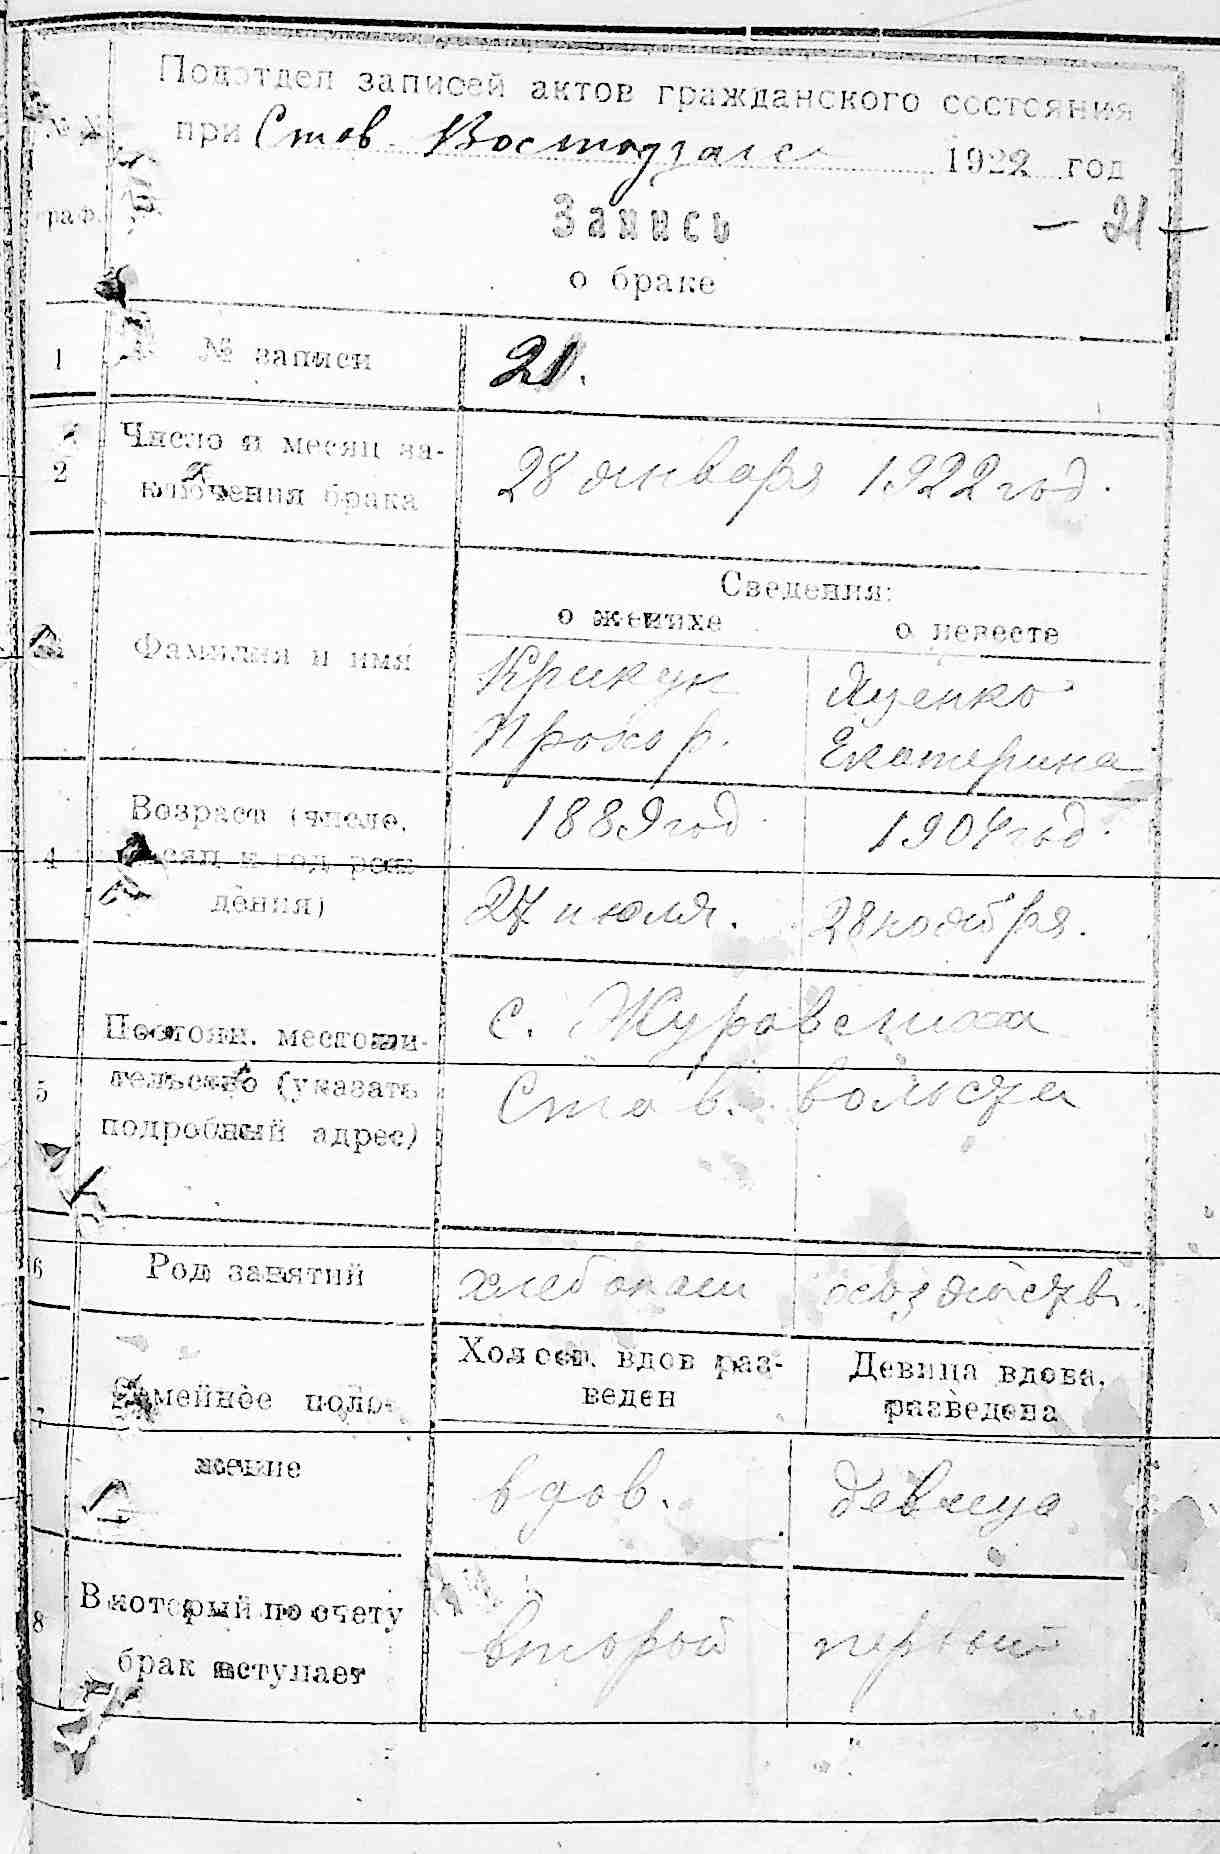 Подотдел записей актов гражданского состояния
при Став. 1922 год
№№
граф.
Запись
— 21 —
о браке
1 № записи 21.
2 Число и месяц за-
ключения брака
28 января 1922 год.
Сведения:
о женихе о невесте
Фамилия и имя
Крикун Яценко
Прохор. Екатерина
4 Возраст (число,
месяц и год рож
дения)
1889 год. 1904 год.
27 июля. 28 ноября.
5 Постоян. местожи-
тельство (указать
подробный адрес)
с. Журавское
Став.
6 Род занятий хлебопаш
7 Семейное поло-
жение
Холост, вдов раз-
веден
Девица вдова,
разведена
вдов. девица
8 В который по счету
брак вступает
второй первый